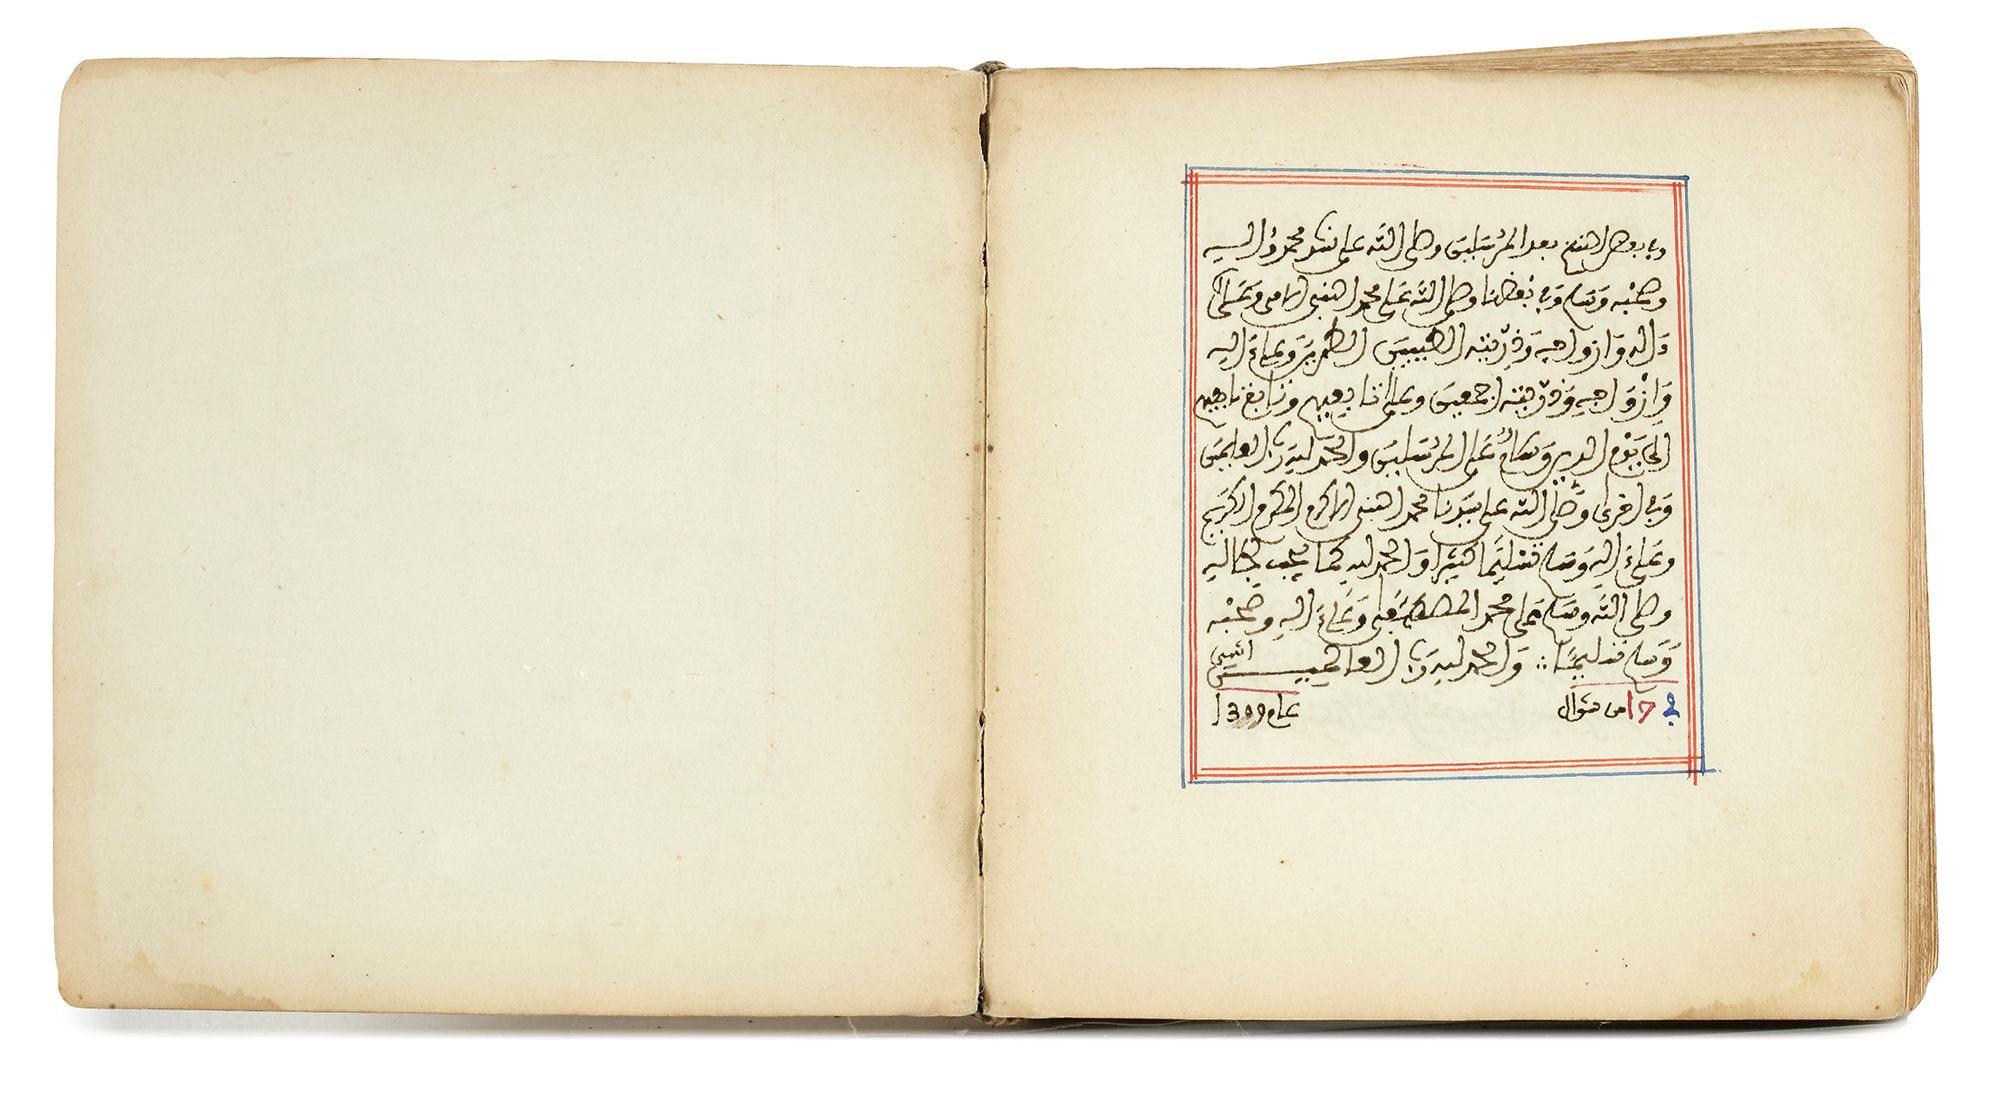 وفي بعض النسخ بعد المرسلين وصلى الله على سيد محمد وءاله
وصحبه وسلم وفي بعضها وصلى الله على محمد النبي الامي وعلى
ءاله وازواجه وذريته الطيبين الطاهرين وعلى ءاله
وازواجه وذريته اجمعين وعلى التابعين وتابع تابعيهم
الى يوم الدين وسلام على المرسلين والحمد لله رب العالمين
وفي اخرى وصلى الله على سيدنا محمد النبي الاكرم المكرم الكريم
وعلى ءاله وسلم تسليما كثيرا والحمد لله كما يجب لجلاله
وصلى الله وسلم على محمد المصطفى وعلى ءاله وصحبه
وسلم تسليما والحمد لله رب العالمين انتهى
في 17 من شوال عام 1399